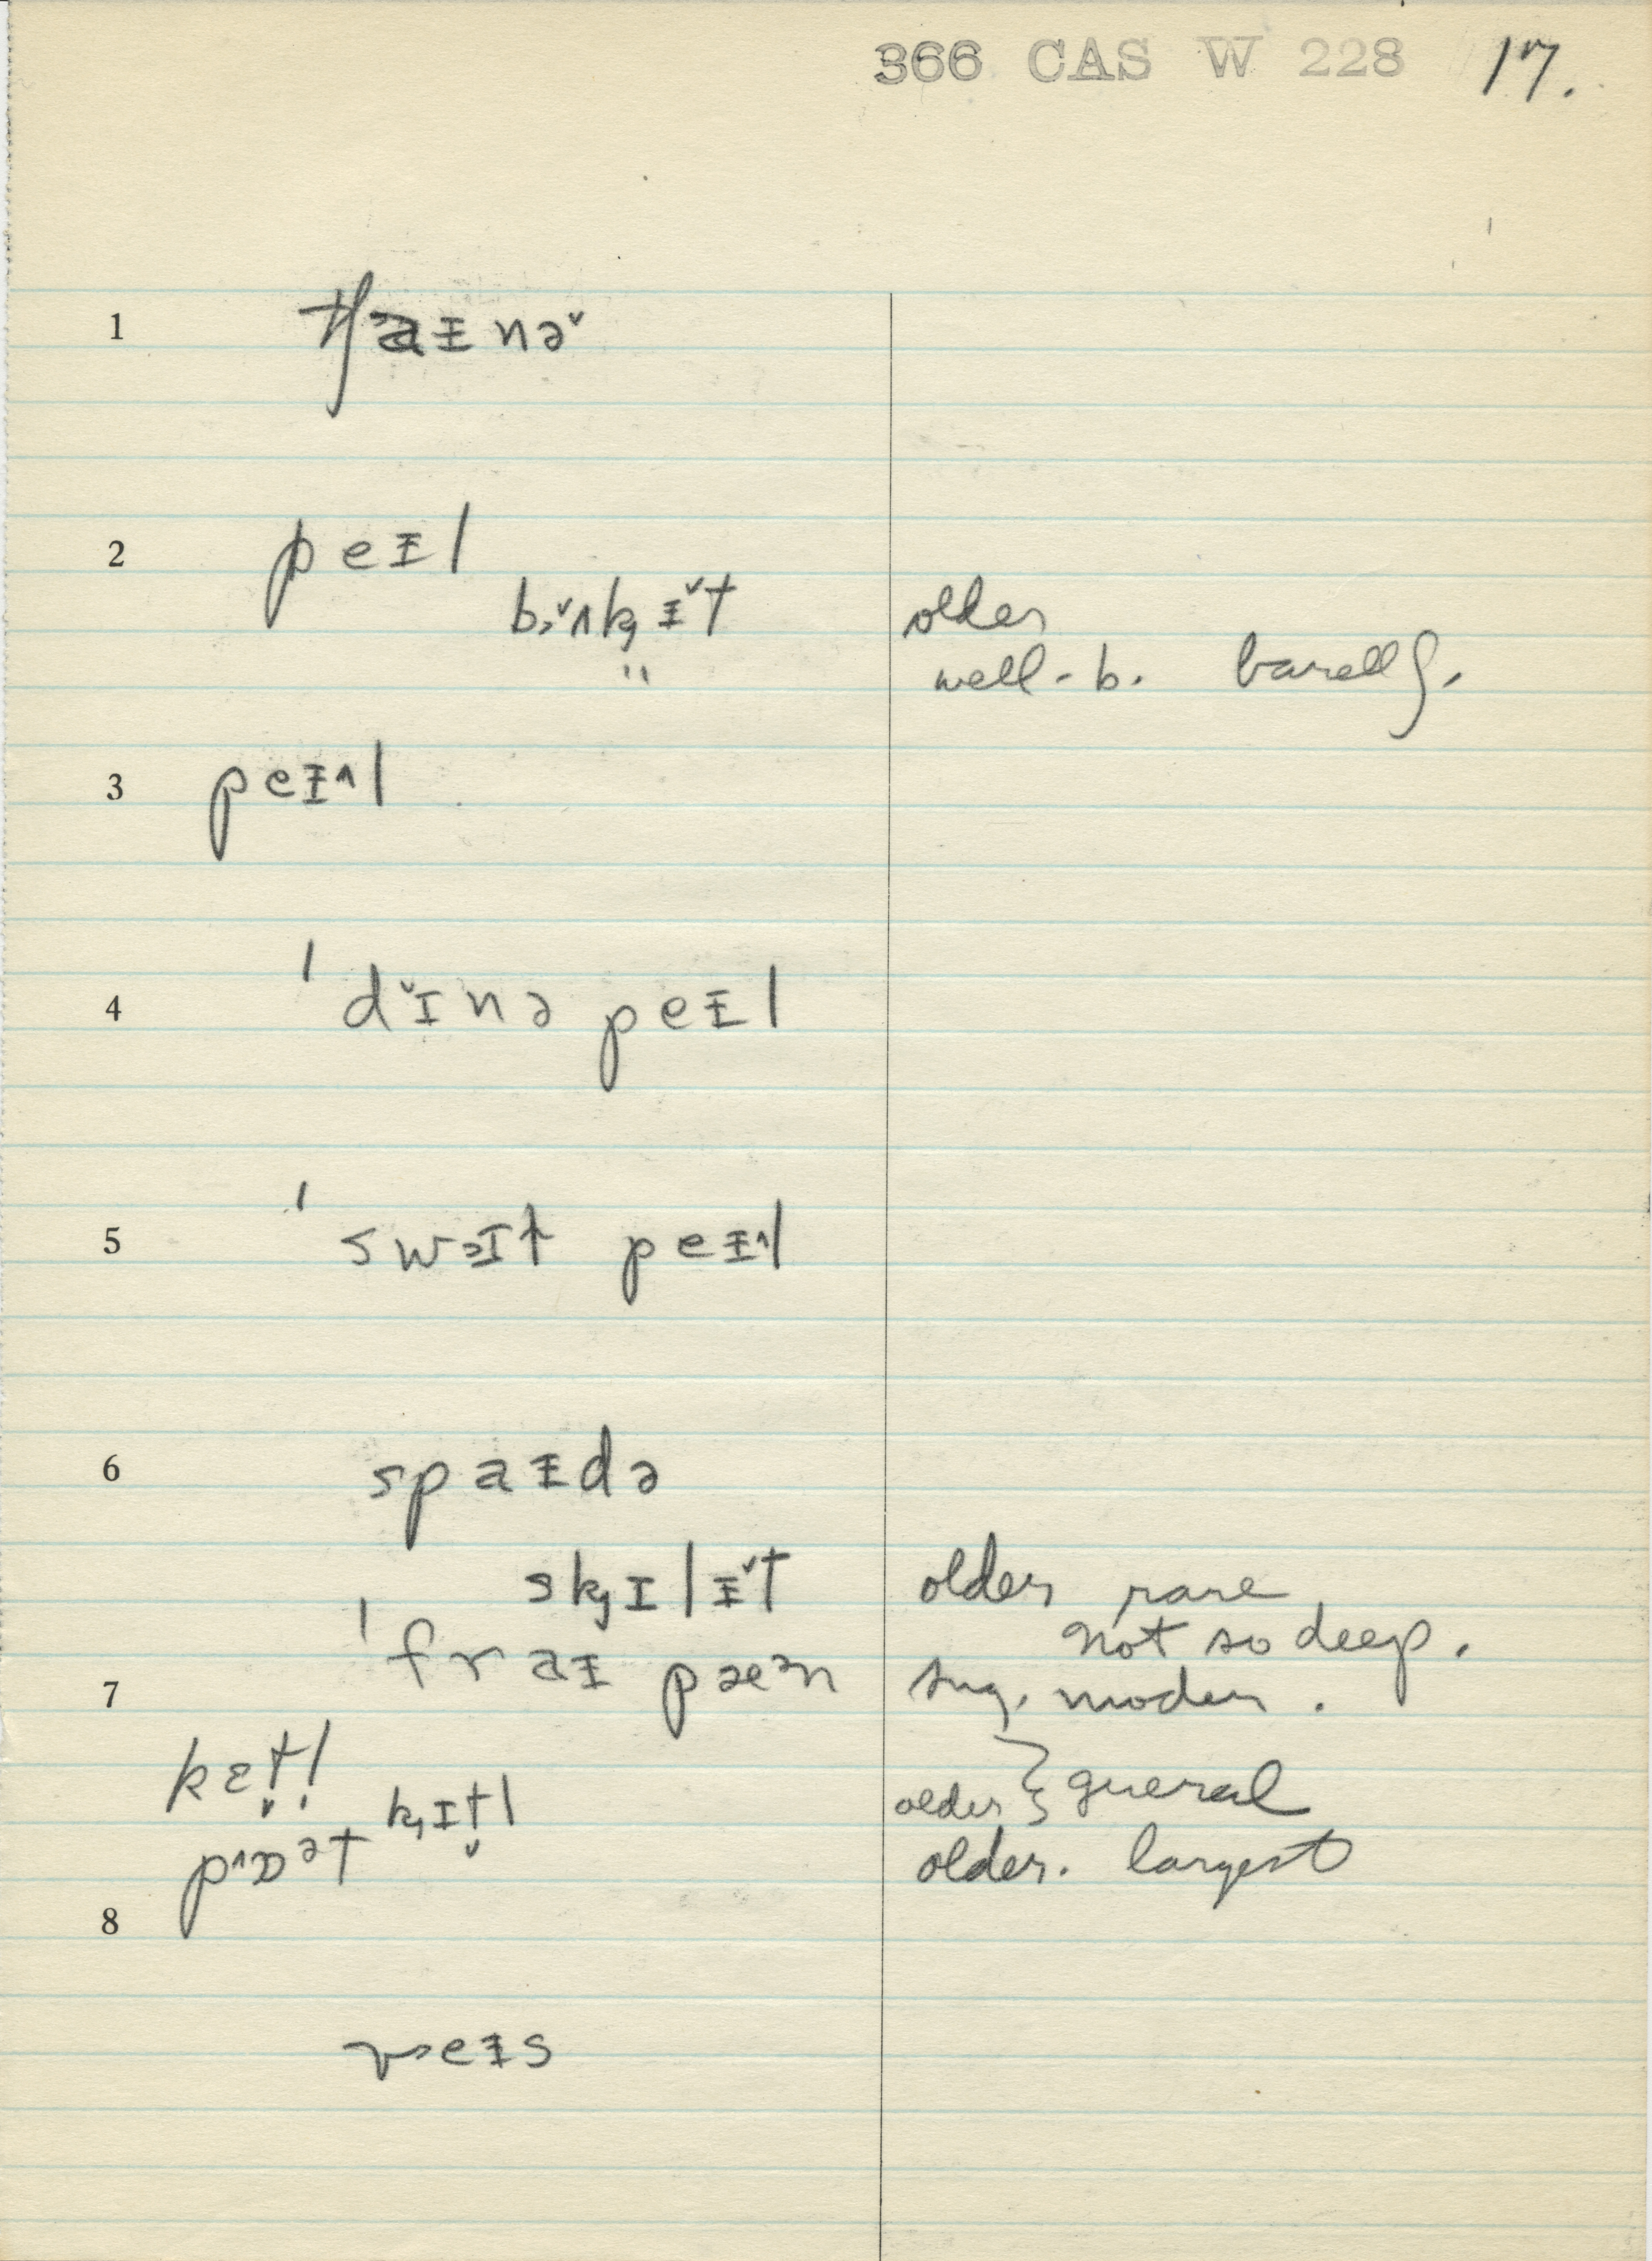 366 CAS W 228 17.
1 tʃaᵻnə˅
2 peᵻl
b˒˅ʌk̡ᵻ˅t older
" well-b. barell ʃ.
3 peᵻ˄l
4 ˈd˅ɪnə peᵻl
5 ˈswəɪt peᵻ˄l
6 spaᵻdə
sk̡ɪlᵻ˅t older rare
not so deep.
7 ˈfraᵻ pæᵊn sug. modern.
kɛt̬l̩
k̡ɪt̬l older } general
p˄ɒᵊt older. largest
8
veᵻs